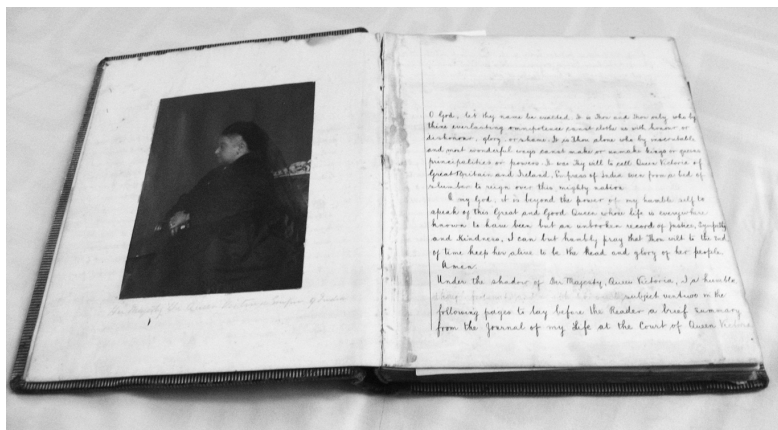 Her Majesty the Queen Victoria Empress of India
O God, let thy name be exalted. It is Thou and Thou only who by
thine everlasting omnipotence canst clothe us with honour or
dishonour, glory or shame. It is Thou alone who by inscrutable
and most wonderful ways canst make or unmake kings or queens
principalities or powers. It was Thy will to call Queen Victoria of
Great Britain and Ireland, Empress of India even from a bed of
slumber to reign over this mighty nation.
O my God, it is beyond the power of my humble self to
speak of this Great and Good Queen whose life is everywhere
known to have been but an unbroken record of Justice, Sympathy
and Kindness, I can but humbly pray that Thou wilt to the End
of time keep her alive to be the Head and glory of her people.
Amen.
Under the shadow of Her Majesty, Queen Victoria, I a humble
subject venture in the
following pages to lay before the Reader a brief summary
from the Journal of my Life at the Court of Queen Victoria